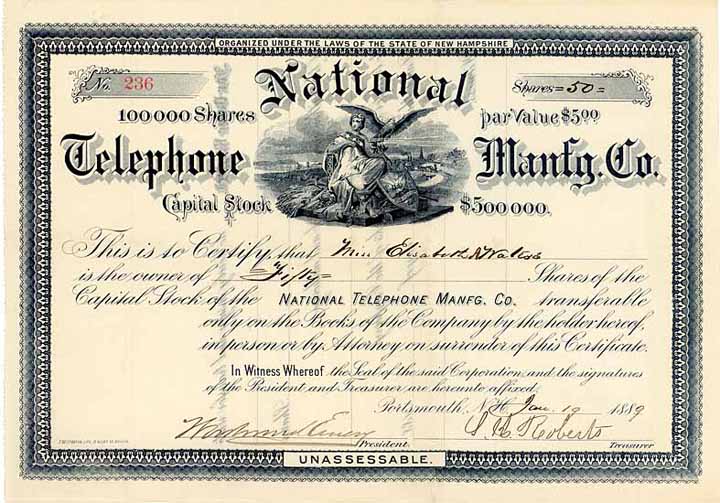 ORGANIZED UNDER THE LAWS OF THE STATE OF NEW HAMPSHIRE
No. 236
Shares = 50 =
National
100000 Shares
par Value $5.00
Telephone Manfg. Co.
Capital Stock $500 000.
This is to Certify, that Miss Elisabeth
is the owner of Fifty Shares of the
Capital Stock of the NATIONAL TELEPHONE MANFG. CO. transferable
only on the Books of the Company by the holder hereof,
in person or by Attorney on surrender of this Certificate.
In Witness Whereof the Seal of the said Corporation and the signatures
of the President and Treasurer are hereunto affixed;
Portsmouth, N.H. Jan. 19 1889
S. W. Roberts
President.
Treasurer
UNASSESSABLE.